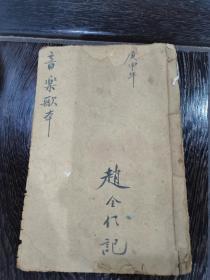 庚申年
音樂歌本
趙全仁記